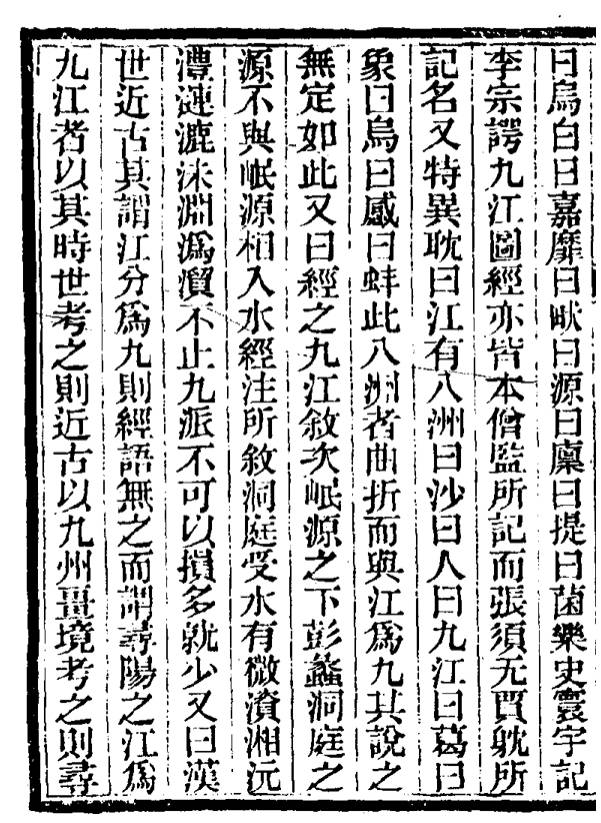 曰烏白曰嘉靡曰畎曰源曰廩曰提曰菌樂史寰宇記
李宗諤九江圖經亦皆本僧監所記而張須无賈躭所
記名又特異耽曰江有八洲曰沙曰人曰九江曰葛曰
象曰烏曰感曰蚌此八洲者曲折而與江爲九其說之
無定如此又曰經之九江敘次岷源之下彭蠡洞庭之
源不與岷源相入水經注所敘洞庭受水有微濱湘沅
澧漣漉沬淵潙濱不止九派不可以損多就少又曰漢
世近古其謂江分爲九則經語無之而謂尋陽之江爲
九江者以其時世考之則近古以九州畺境考之則尋